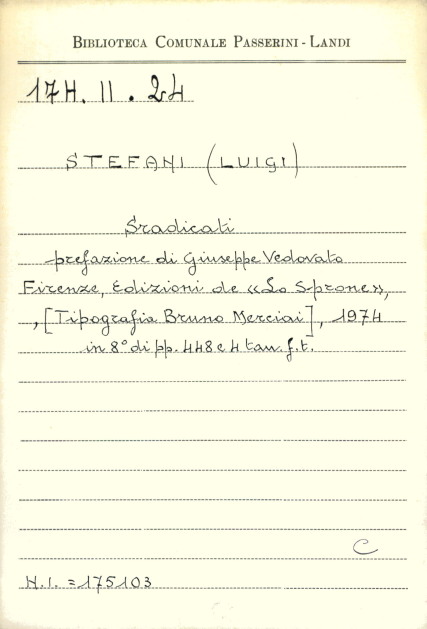 BIBLIOTECA COMUNALE PASSERINI - LANDI
17H. II. 24
STEFANI (LUIGI)
Sradicati
prefazione di Giuseppe Vedovato
Firenze, Edizioni de «Lo Sprone»,
, [Tipografia Bruno Merciai], 1974
in 8° di pp. 448 e 4 tav. f.t.
C
N.I. = 175103